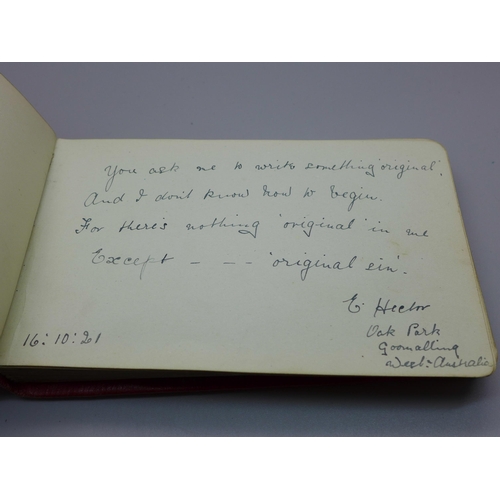 You ask me to write something 'original',
And I don't know how to begin.
For there's nothing 'original' in me
Except - - - 'original sin'.
E Hector
Oak Park
Goomalling
West: Australia
16:10:21